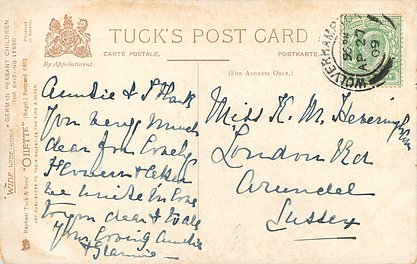 TUCK'S POST CARD
CARTE POSTALE.
POSTKARTE.
By Appointment.
(FOR ADDRESS ONLY.)
"WIDE-WIDE-WORLD" "GERMAN PEASANT CHILDREN.
THE KNITTING LESSON."
Raphael Tuck & Sons' "OILETTE" [Regd.] Postcard
ART PUBLISHERS TO THEIR MAJESTIES THE KING & QUEEN.
WOLVERHAMP
AP 27
09
Auntie & I thank
you very much
dear for lovely
Flowers & letter
we unite in love
to you dear & to all
Your loving Auntie
&
Miss K. M.
London Rd
Arundel
Sussex